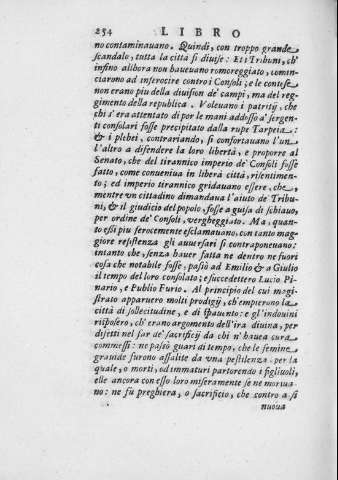 254 LIBRO
no contaminauano. Quindi, con troppo grande
scandalo, tutta la città si diuise: Et i Tribuni, ch'
infino alihora non haueuano romoreggiato, comin-
ciarono ad inferocire contro i Consoli; e le contese
non erano piu della diuision de' campi, ma del reg-
gimento della republica. Voleuano i patritij, che
chi s'era attentato di por le mani addosso a' sergen-
ti consolari fosse precipitato dalla rupe Tarpeia:
& i plebei, contrariando, si confortauano l'un
l'altro a difendere la loro libertà, e proporre al
Senato, che del tirannico imperio de' Consoli fosse
fatto, come conueniua in liberà città, risentimen-
to; ed imperio tirannico gridauano essere, che,
mentre vn cittadino dimandaua l'aiuto de' Tribu-
ni, & il giudicio del popolo, fosse a guisa di schiauo,
per ordine de' Consoli, vergheggiato. Ma, quan-
to essi piu ferocemente esclamauano, con tanto mag-
giore resistenza gli auuersari si contraponeuano:
intanto che, senza hauer fatta ne dentro ne fuori
cosa che notabile fosse, passò ad Emilio & a Giulio
il tempo del loro consolato; e succedettero Lucio Pi-
nario, e Publio Furio. Al principio del cui magi-
strato apparuero molti prodigij, ch'empierono la
città di sollecitudine, e di spauento: e gl'indouini
risposero, ch'erano argomento dell'ira diuina, per
difetti nel far de' sacrificij da chi n'hauea cura
commessi: ne passò guari di tempo, che le femine
grauide furono assalite da vna pestilenza, per la
quale, o morti, od immaturi partorendo i figliuoli,
elle ancora con esso loro miseramente se ne moriua-
no: ne fu preghiera, o sacrificio, che contro a sì
nuoua